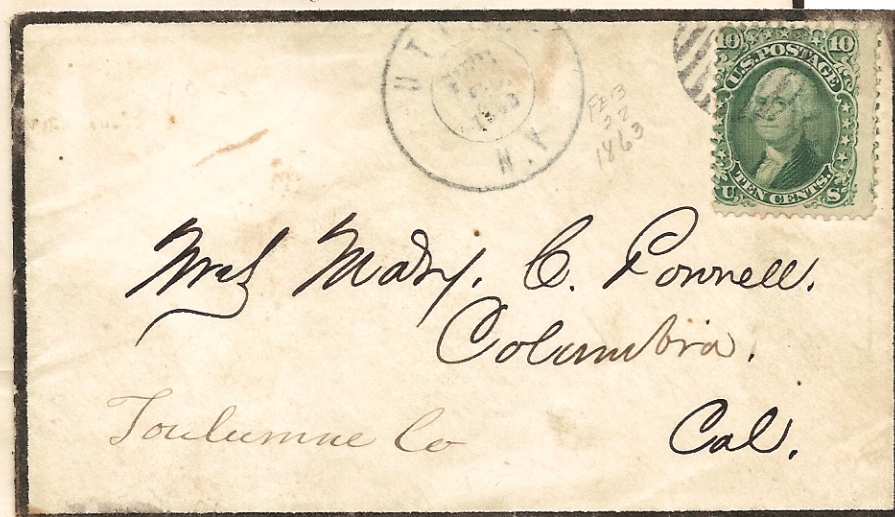 UTICA
N.Y.
FEB
22
1863
10 10
U.S. POSTAGE
TEN CENTS.
U S
Mrs Mary. C. Pownell.
Columbia.
Toulumne Co Cal.